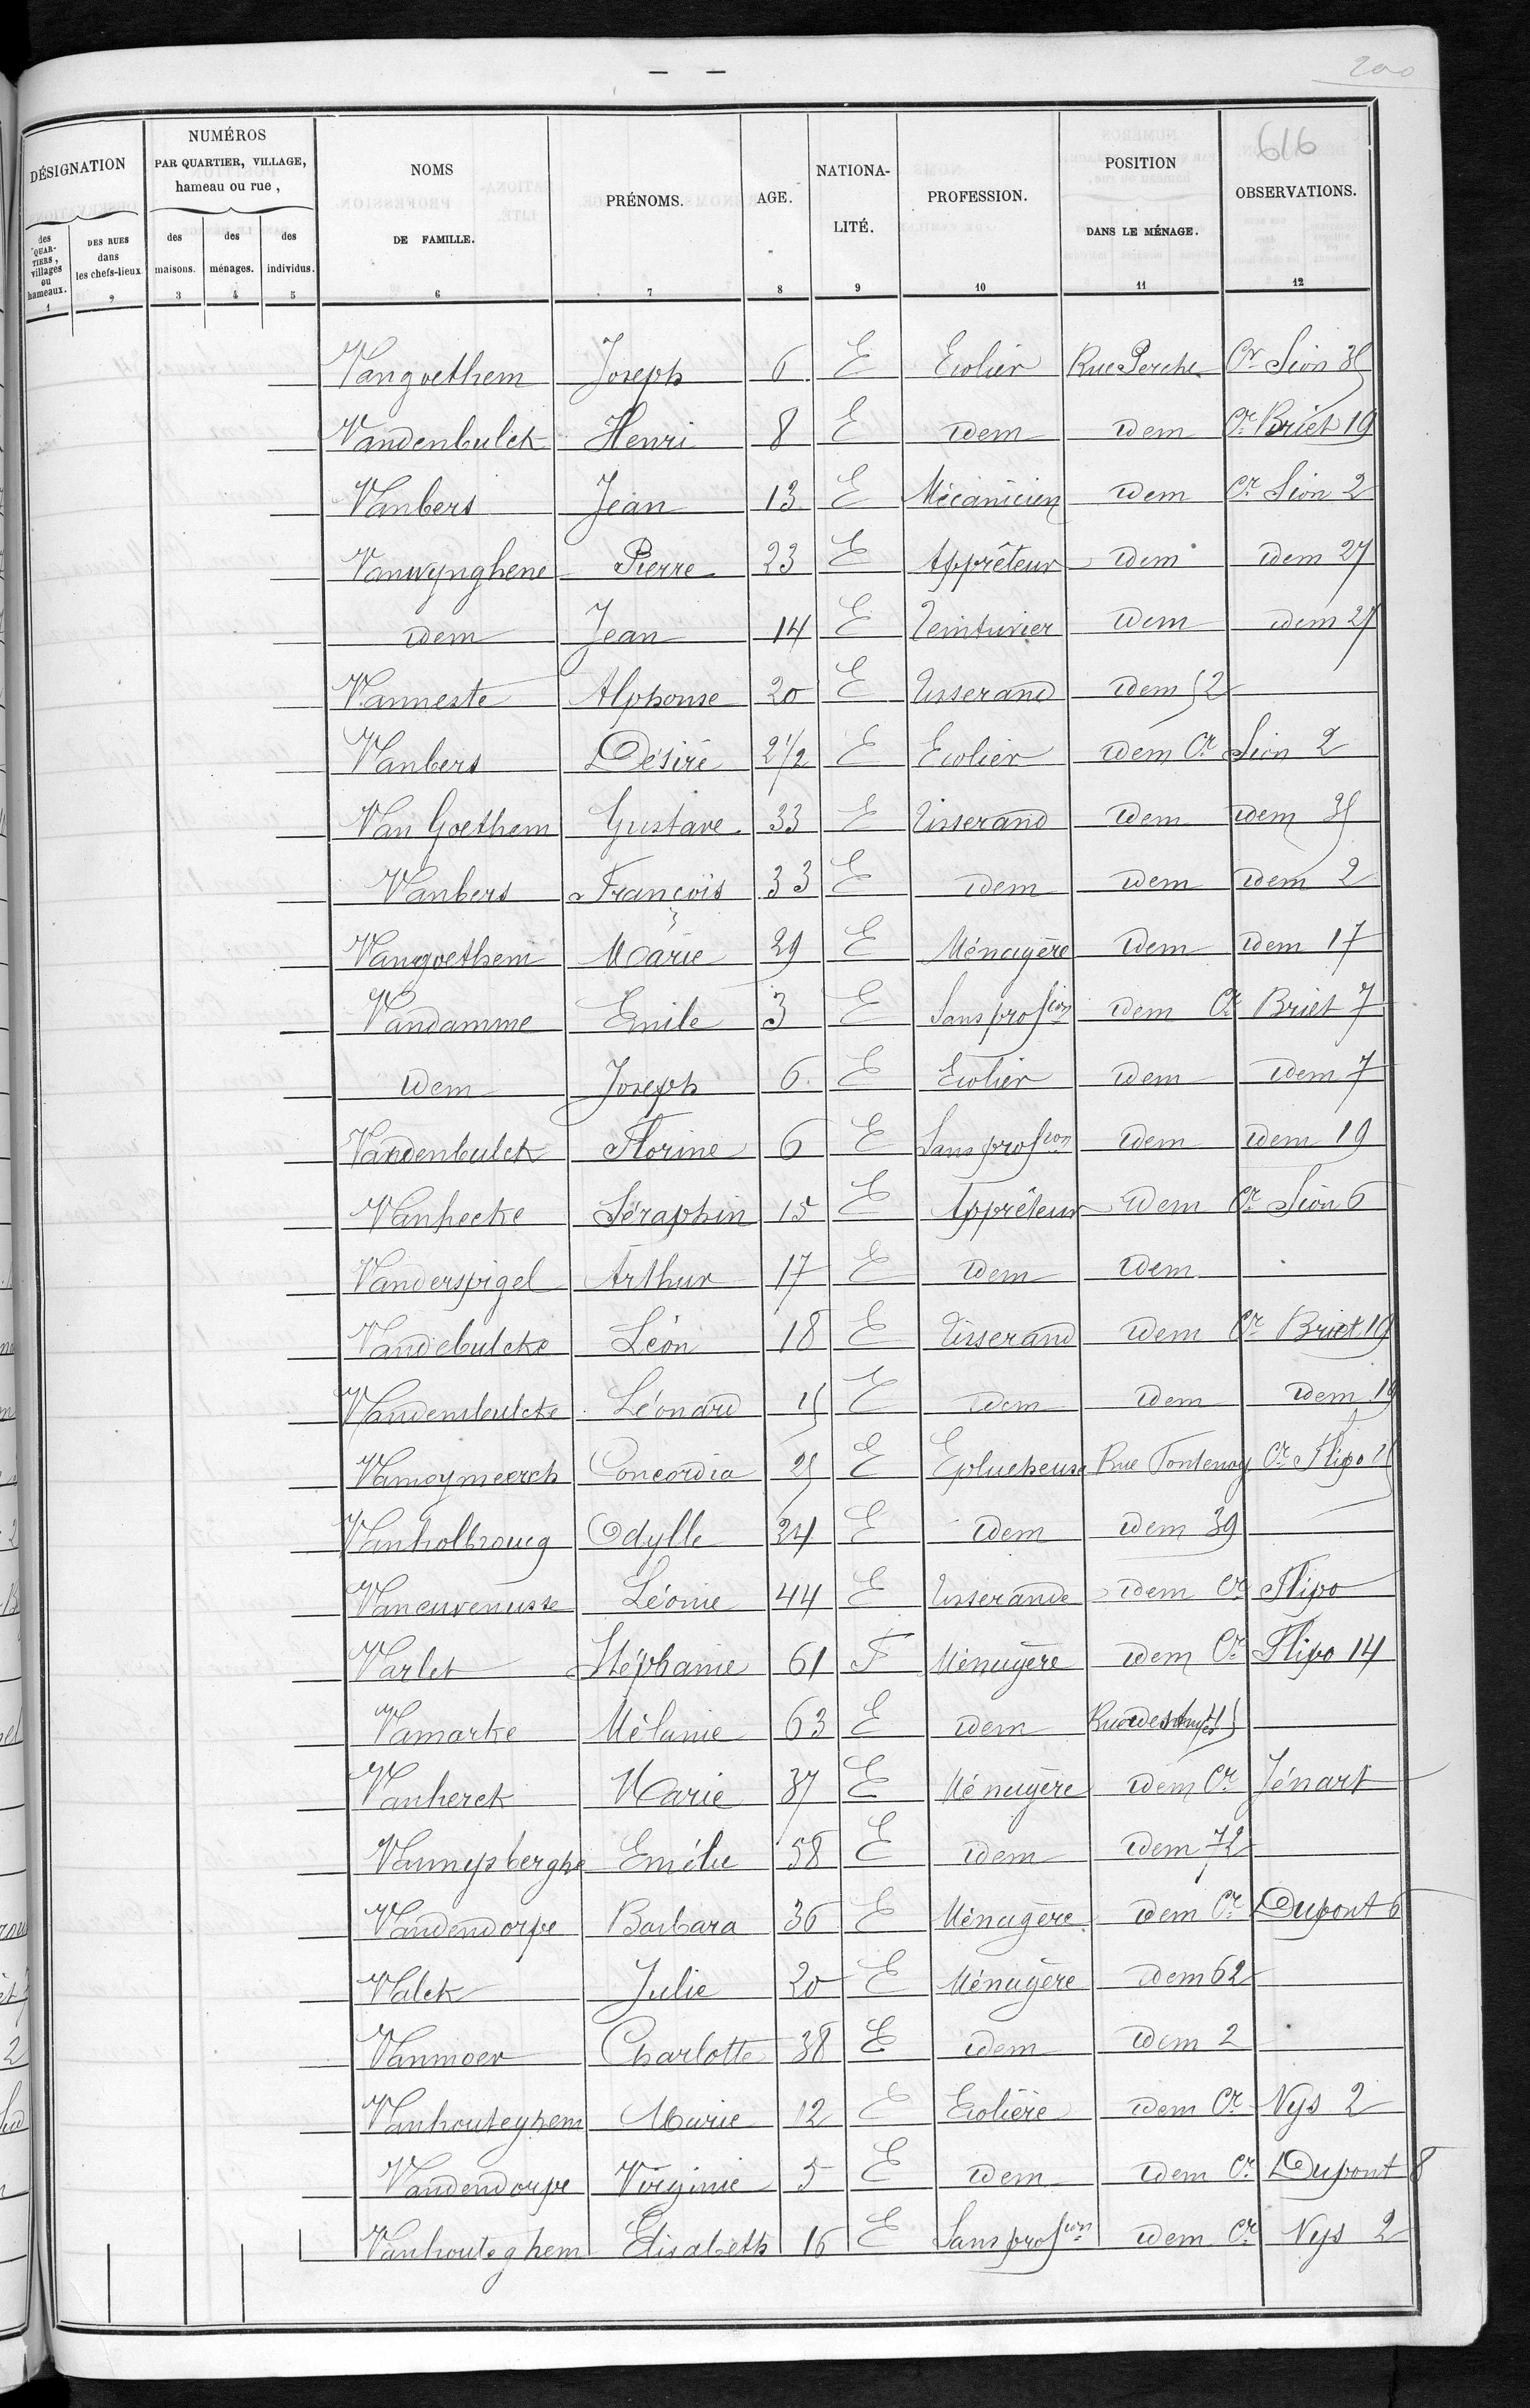 200
616
DÉSIGNATION
des QUARTIERS, villages ou hameaux. 1
DES RUES dans les chefs-lieux 2
NUMÉROS PAR QUARTIER, VILLAGE, hameau ou rue,
des maisons. 3
des ménages. 4
des individus. 5
NOMS DE FAMILLE. 6
PRÉNOMS. 7
AGE. 8
NATIONALITÉ. 9
PROFESSION. 10
POSITION DANS LE MÉNAGE. 11
OBSERVATIONS. 12
Vangoethem Joseph 6 E Ecolier Rue Perche Cr Sion 35
Vandenbulck Henri 8 E idem idem Cr Briet 19
Vanbers Jean 13 E Mécanicien idem Cr Sion 2
Vanwynghene Pierre 23 E Apprêteur idem idem 27
idem Jean 14 E Teinturier idem idem 27
Vanneste Alphonse 20 E Tisserand idem 52
Vanbers Désiré 2 1/2 E Ecolier idem Cr Sion 2
Van Goethem Gustave 33 E Tisserand idem idem 35
Vanbers François 33 E idem idem idem 2
Vangoethem Marie 29 E Ménagère idem idem 17
Vandamme Emile 3 E Sans profion idem Cr Briet 7
idem Joseph 6 E Ecolier idem idem 7
Vandenbulck Florine 6 E Sans profion idem idem 19
Vanhecke Séraphin 15 E Apprêteur idem Cr Sion 6
Vanderspigel Arthur 17 E idem idem
Vandebulcke Léon 18 E Tisserand idem Cr Briet 19
Vandenbulcke Léonard 15 E idem idem idem 19
Concordia 25 E Eplucheuse Rue Fontenoy Cr Flipo
Vanholbroucq Odylle 24 E idem idem 39
Léonie 44 E Tisserande idem Cr Flipo
Varlet Stéphanie 61 F Ménagère idem Cr Flipo 14
Vamarke Mélanie 63 E idem Rue des
Vanherck Marie 37 E Ménagère idem Cr Jénart
Vannypberghe Emélie 58 E idem idem 72
Vandendorpe Barbara 36 E Ménagère idem Cr Dupont 6
Valck Julie 20 E Ménagère idem 62
Vanmoer Charlotte 38 E idem idem 2
Vanhouteghem Marie 12 E Ecolière idem Cr Nys 2
Vandendorpe Virginie 5 E idem idem Cr Dupont 8
Vanhouteghem Elisabeth 16 E Sans profion idem Cr Nys 2